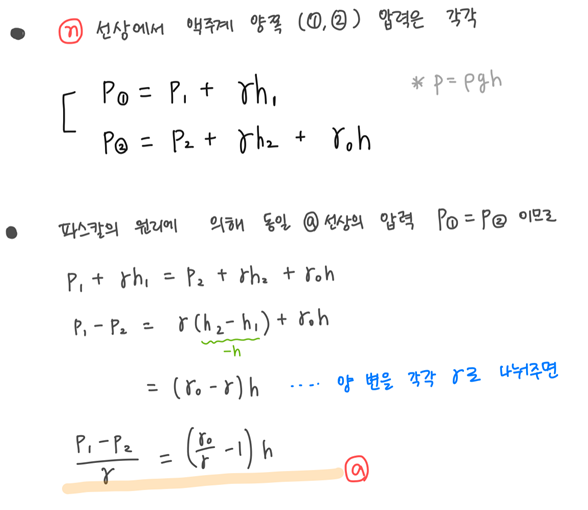 • ⓝ 선상에서 액주계 양쪽 (①,②) 압력은 각각
P① = P₁ + γh₁ * p=ρgh
P② = P₂ + γh₂ + γ₀h
• 파스칼의 원리에 의해 동일 ⓐ선상의 압력 P① = P② 이므로
P₁ + γh₁ = P₂ + γh₂ + γ₀h
P₁ - P₂ = γ(h₂-h₁) + γ₀h
-h
= (γ₀ - γ)h ···· 양 변을 각각 γ로 나눠주면
(P₁-P₂)/γ = (γ₀/γ -1) h ⓐ